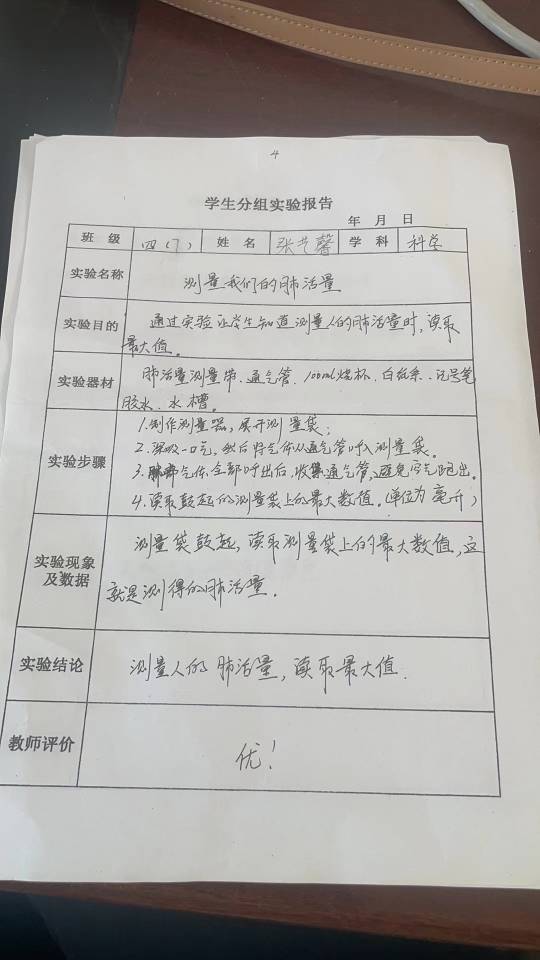 4
学生分组实验报告
年 月 日
班 级 四(7) 姓 名 张艺馨 学 科 科学
实验名称 测量我们的肺活量
实验目的 通过实验让学生知道测量人的肺活量时,读取
最大值。
实验器材 肺活量测量带、通气管、100ml烧杯、白纸条、记号笔
胶水、水槽。
实验步骤
1.制作测量器,展开测量袋;
2.深吸一口气,然后将气体从通气管呼入测量袋。
3.肺部气体全部呼出后,收集通气管,避免空气跑出。
4.读取鼓起的测量袋上的最大数值。(单位为毫升)
实验现象
及数据
测量袋鼓起,读取测量袋上的最大数值,这
就是测得的肺活量。
实验结论 测量人的肺活量,读取最大值.
教师评价 优!